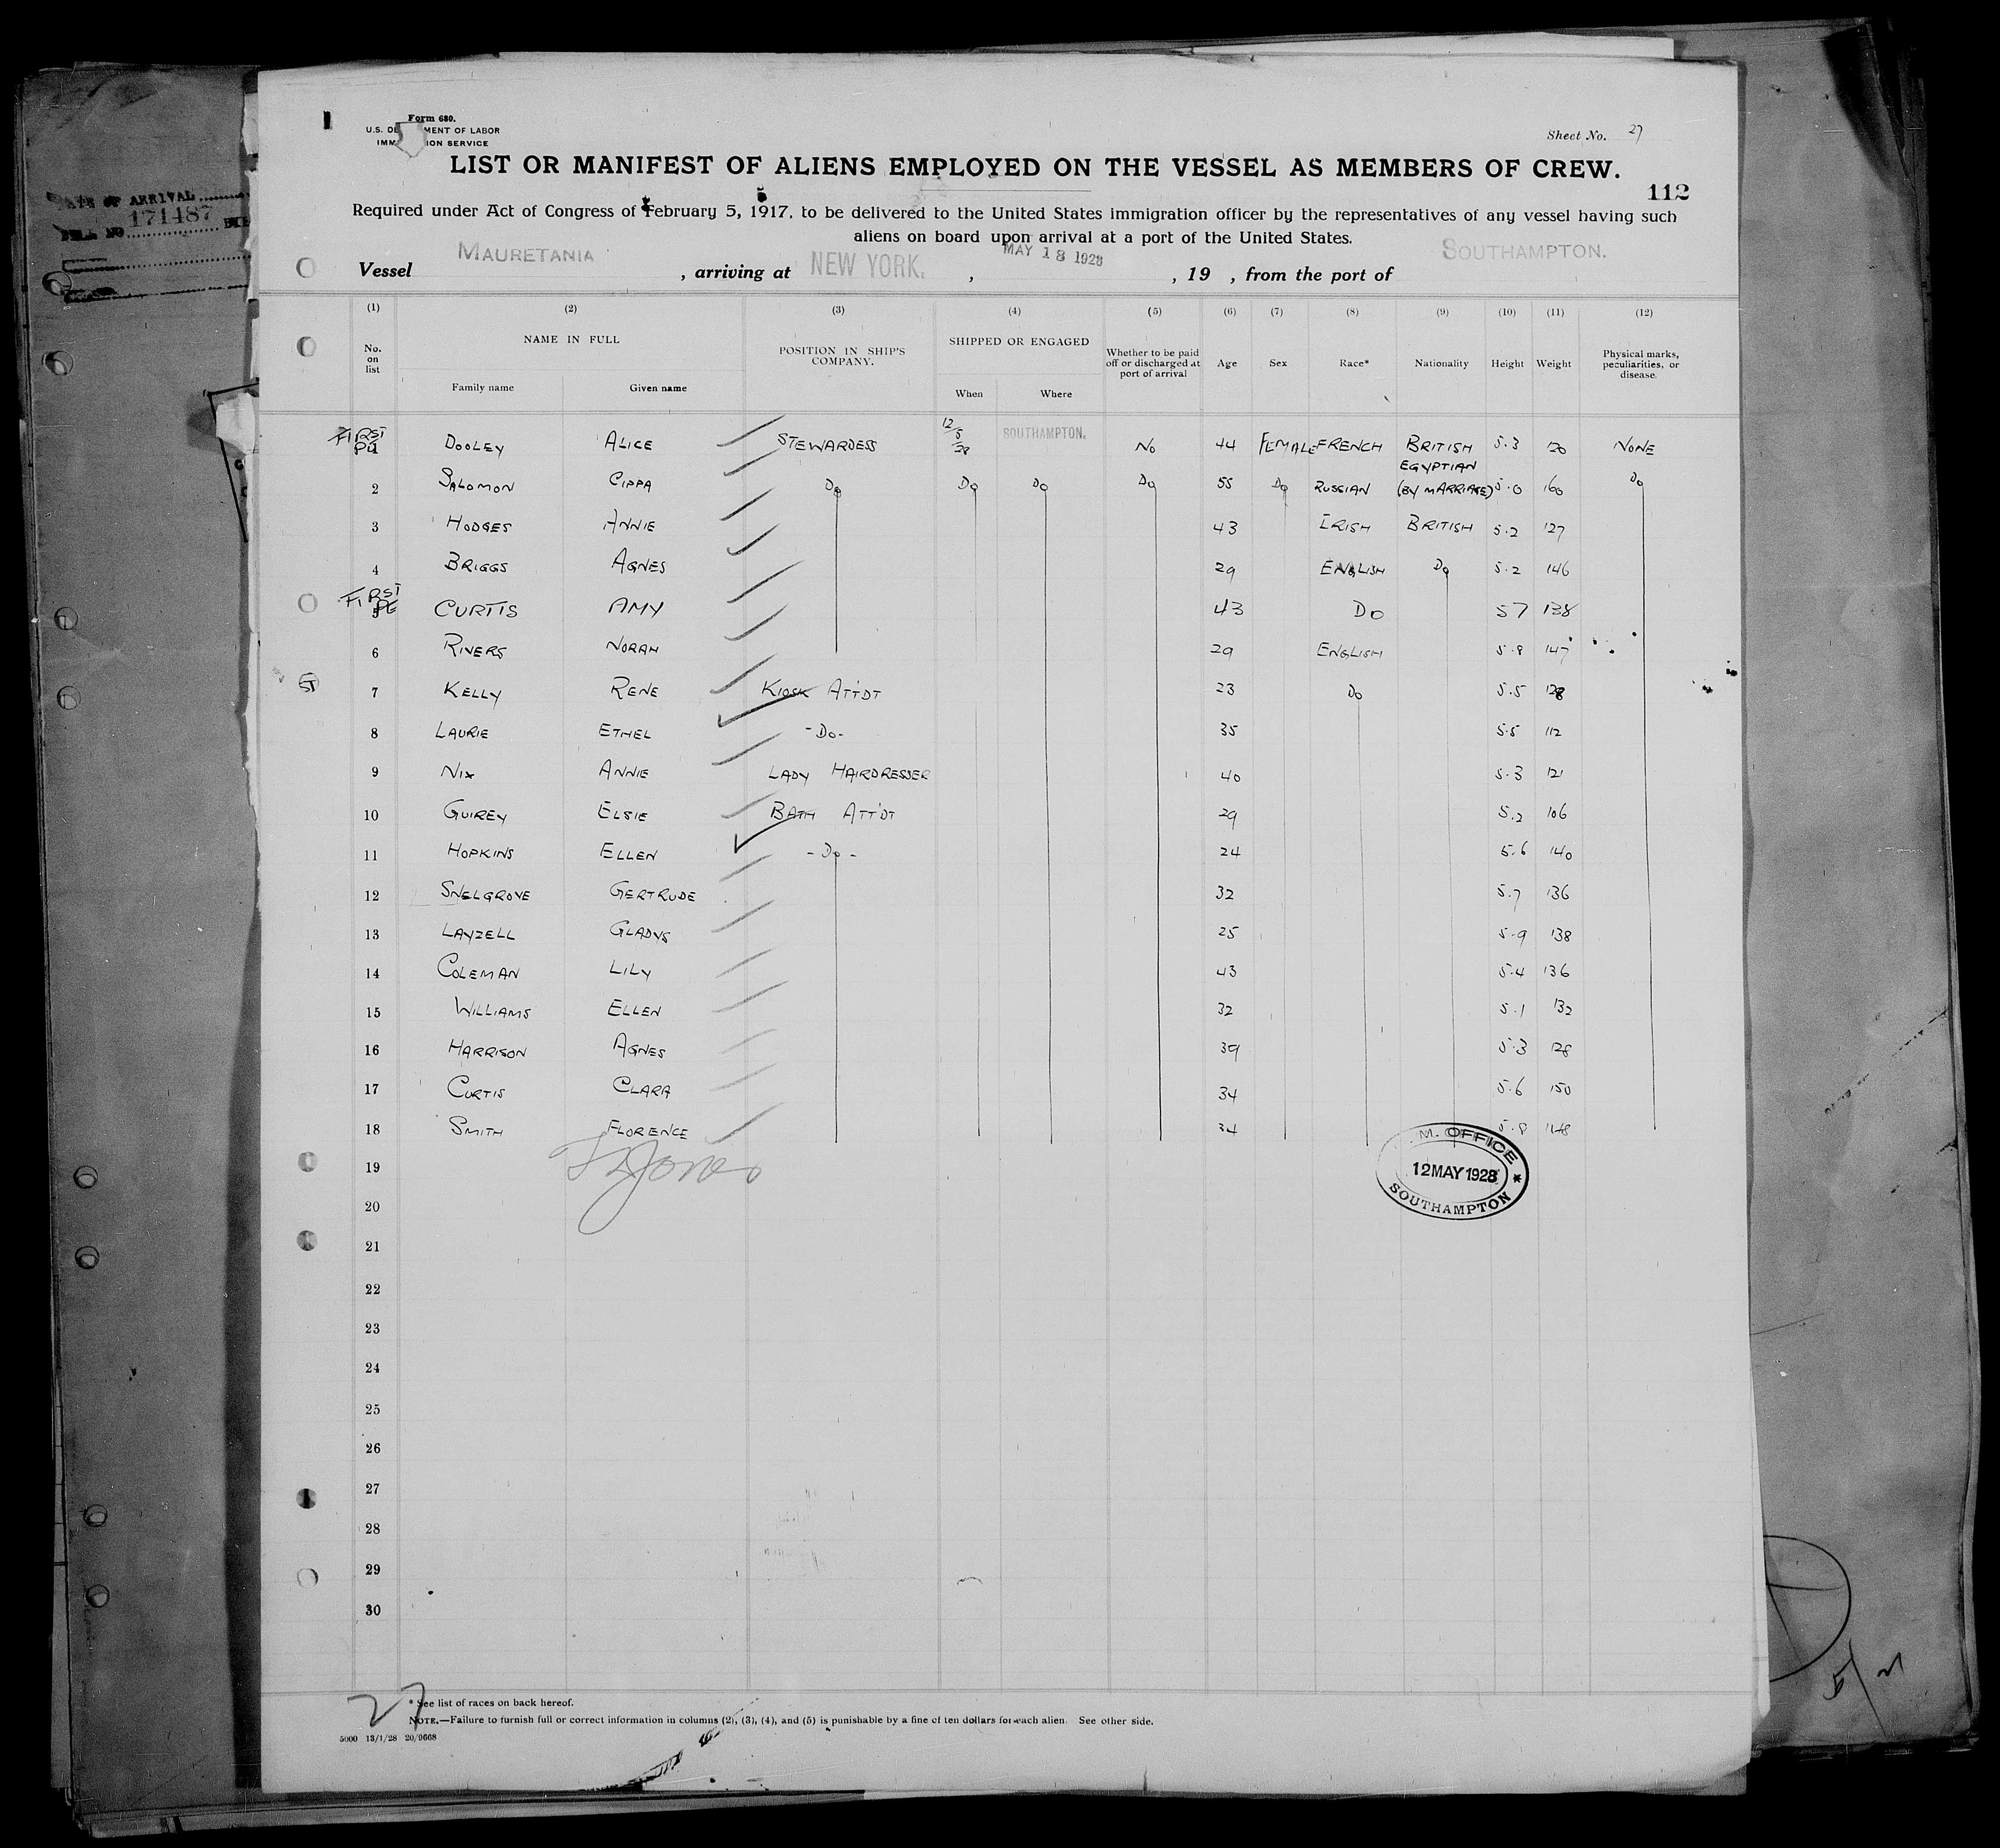 Form 680.
U.S. DE MENT OF LABOR
IMM ION SERVICE
Sheet No. 27
LIST OR MANIFEST OF ALIENS EMPLOYED ON THE VESSEL AS MEMBERS OF CREW.
112
Required under Act of Congress of February 5, 1917, to be delivered to the United States immigration officer by the representatives of any vessel having such
aliens on board upon arrival at a port of the United States.
Vessel MAURETANIA, arriving at NEW YORK, MAY 18 1928, 19 , from the port of SOUTHAMPTON.
(1) (2) (3) (4) (5) (6) (7) (8) (9) (10) (11) (12)
No. on list NAME IN FULL POSITION IN SHIP'S COMPANY. SHIPPED OR ENGAGED Whether to be paid off or discharged at port of arrival Age Sex Race* Nationality Height Weight Physical marks, peculiarities, or disease.
Family name Given name When Where
FIRST DOOLEY ALICE STEWARDESS 12/5/28 SOUTHAMPTON. NO 44 FEMALE FRENCH BRITISH 5.3 120 NONE
2 SALOMON CIPPA Do Do Do Do 55 Do RUSSIAN EGYPTIAN (BY MARRIAGE) 5.0 160 Do
3 HODGES ANNIE 43 IRISH BRITISH 5.2 127
4 BRIGGS AGNES 29 ENGLISH Do 5.2 146
FIRST 5 CURTIS AMY 43 Do 57 138
6 RIVERS NORAH 29 ENGLISH 5.8 147
ST 7 KELLY RENE KIOSK ATT'DT 23 Do 5.5 128
8 LAURIE ETHEL -Do- 35 5.5 112
9 NIX ANNIE LADY HAIRDRESSER 40 5.3 121
10 GUIREY ELSIE BATH ATT'DT 29 5.2 106
11 HOPKINS ELLEN -Do- 24 5.6 140
12 SNELGROVE GERTRUDE 32 5.7 136
13 LAYZELL GLADYS 25 5.9 138
14 COLEMAN LILY 43 5.4 136
15 WILLIAMS ELLEN 32 5.1 132
16 HARRISON AGNES 39 5.3 128
17 CURTIS CLARA 34 5.6 150
18 SMITH FLORENCE 34 5.8 148
19
20
21
22
23
24
25
26
27
28
29
30
M. OFFICE
12 MAY 1928
SOUTHAMPTON
27
* See list of races on back hereof.
NOTE.—Failure to furnish full or correct information in columns (2), (3), (4), and (5) is punishable by a fine of ten dollars for each alien. See other side.
5000 13/1/28 20/9668
ATE OF ARRIVAL
171487